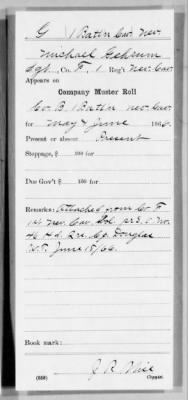 G | 1 Batt'n Cav. Nev.
Michael Gehrum
Sgt., Co. F, 1 Reg't Nev. Cav.
Appears on
Company Muster Roll
Co. B, 1 Batt'n Nev. Cav.
for May & June, 1866.
Present or absent Present
Stoppage, $ 100 for
Due Gov't $ 100 for
Remarks: Attached from Co. F
1st Nev. Cav. Vol. pr S. O. No.
46 Hd. Qrs. Cp. Douglas
U.T. June 15/66.
Book mark:
(858)
Copyist.